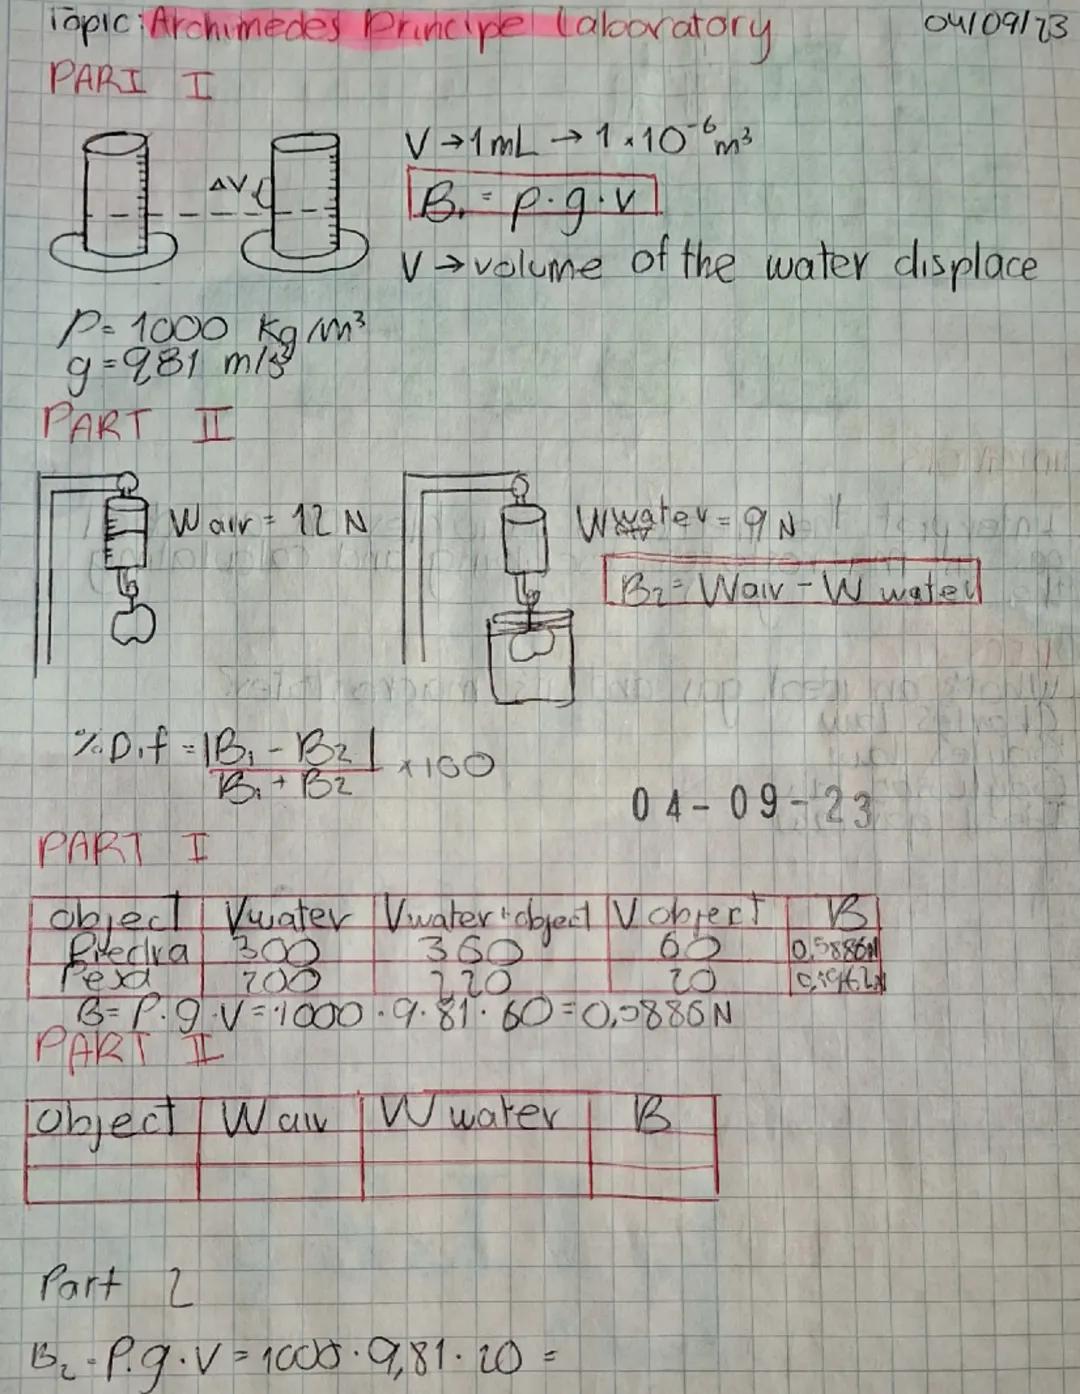 Topic: Archimedes Principe Laboratory 04/09/23
PART I
V → 1 mL → 1 × 10⁻⁶ m³
ΔV
B₁ = ρ · g · v
V → volume of the water displace
ρ = 1000 kg/m³
g = 9,81 m/s²
PART II
Wair = 12 N
Wwater = 9 N
B₂ = Wair - W water
% Dif = |B₁ - B₂| / B₁ + B₂ × 100
04-09-23
PART I
object Vwater Vwater+object V object B
Piedra 300 360 60 0,5886N
Pesa 200 220 20 0,1962N
B = ρ · g · V = 1000 · 9.81 · 60 = 0,5886N
PART II
Object W air W water B
Part 2
B₂ = ρ · g · V = 1000 · 9,81 · 20 =